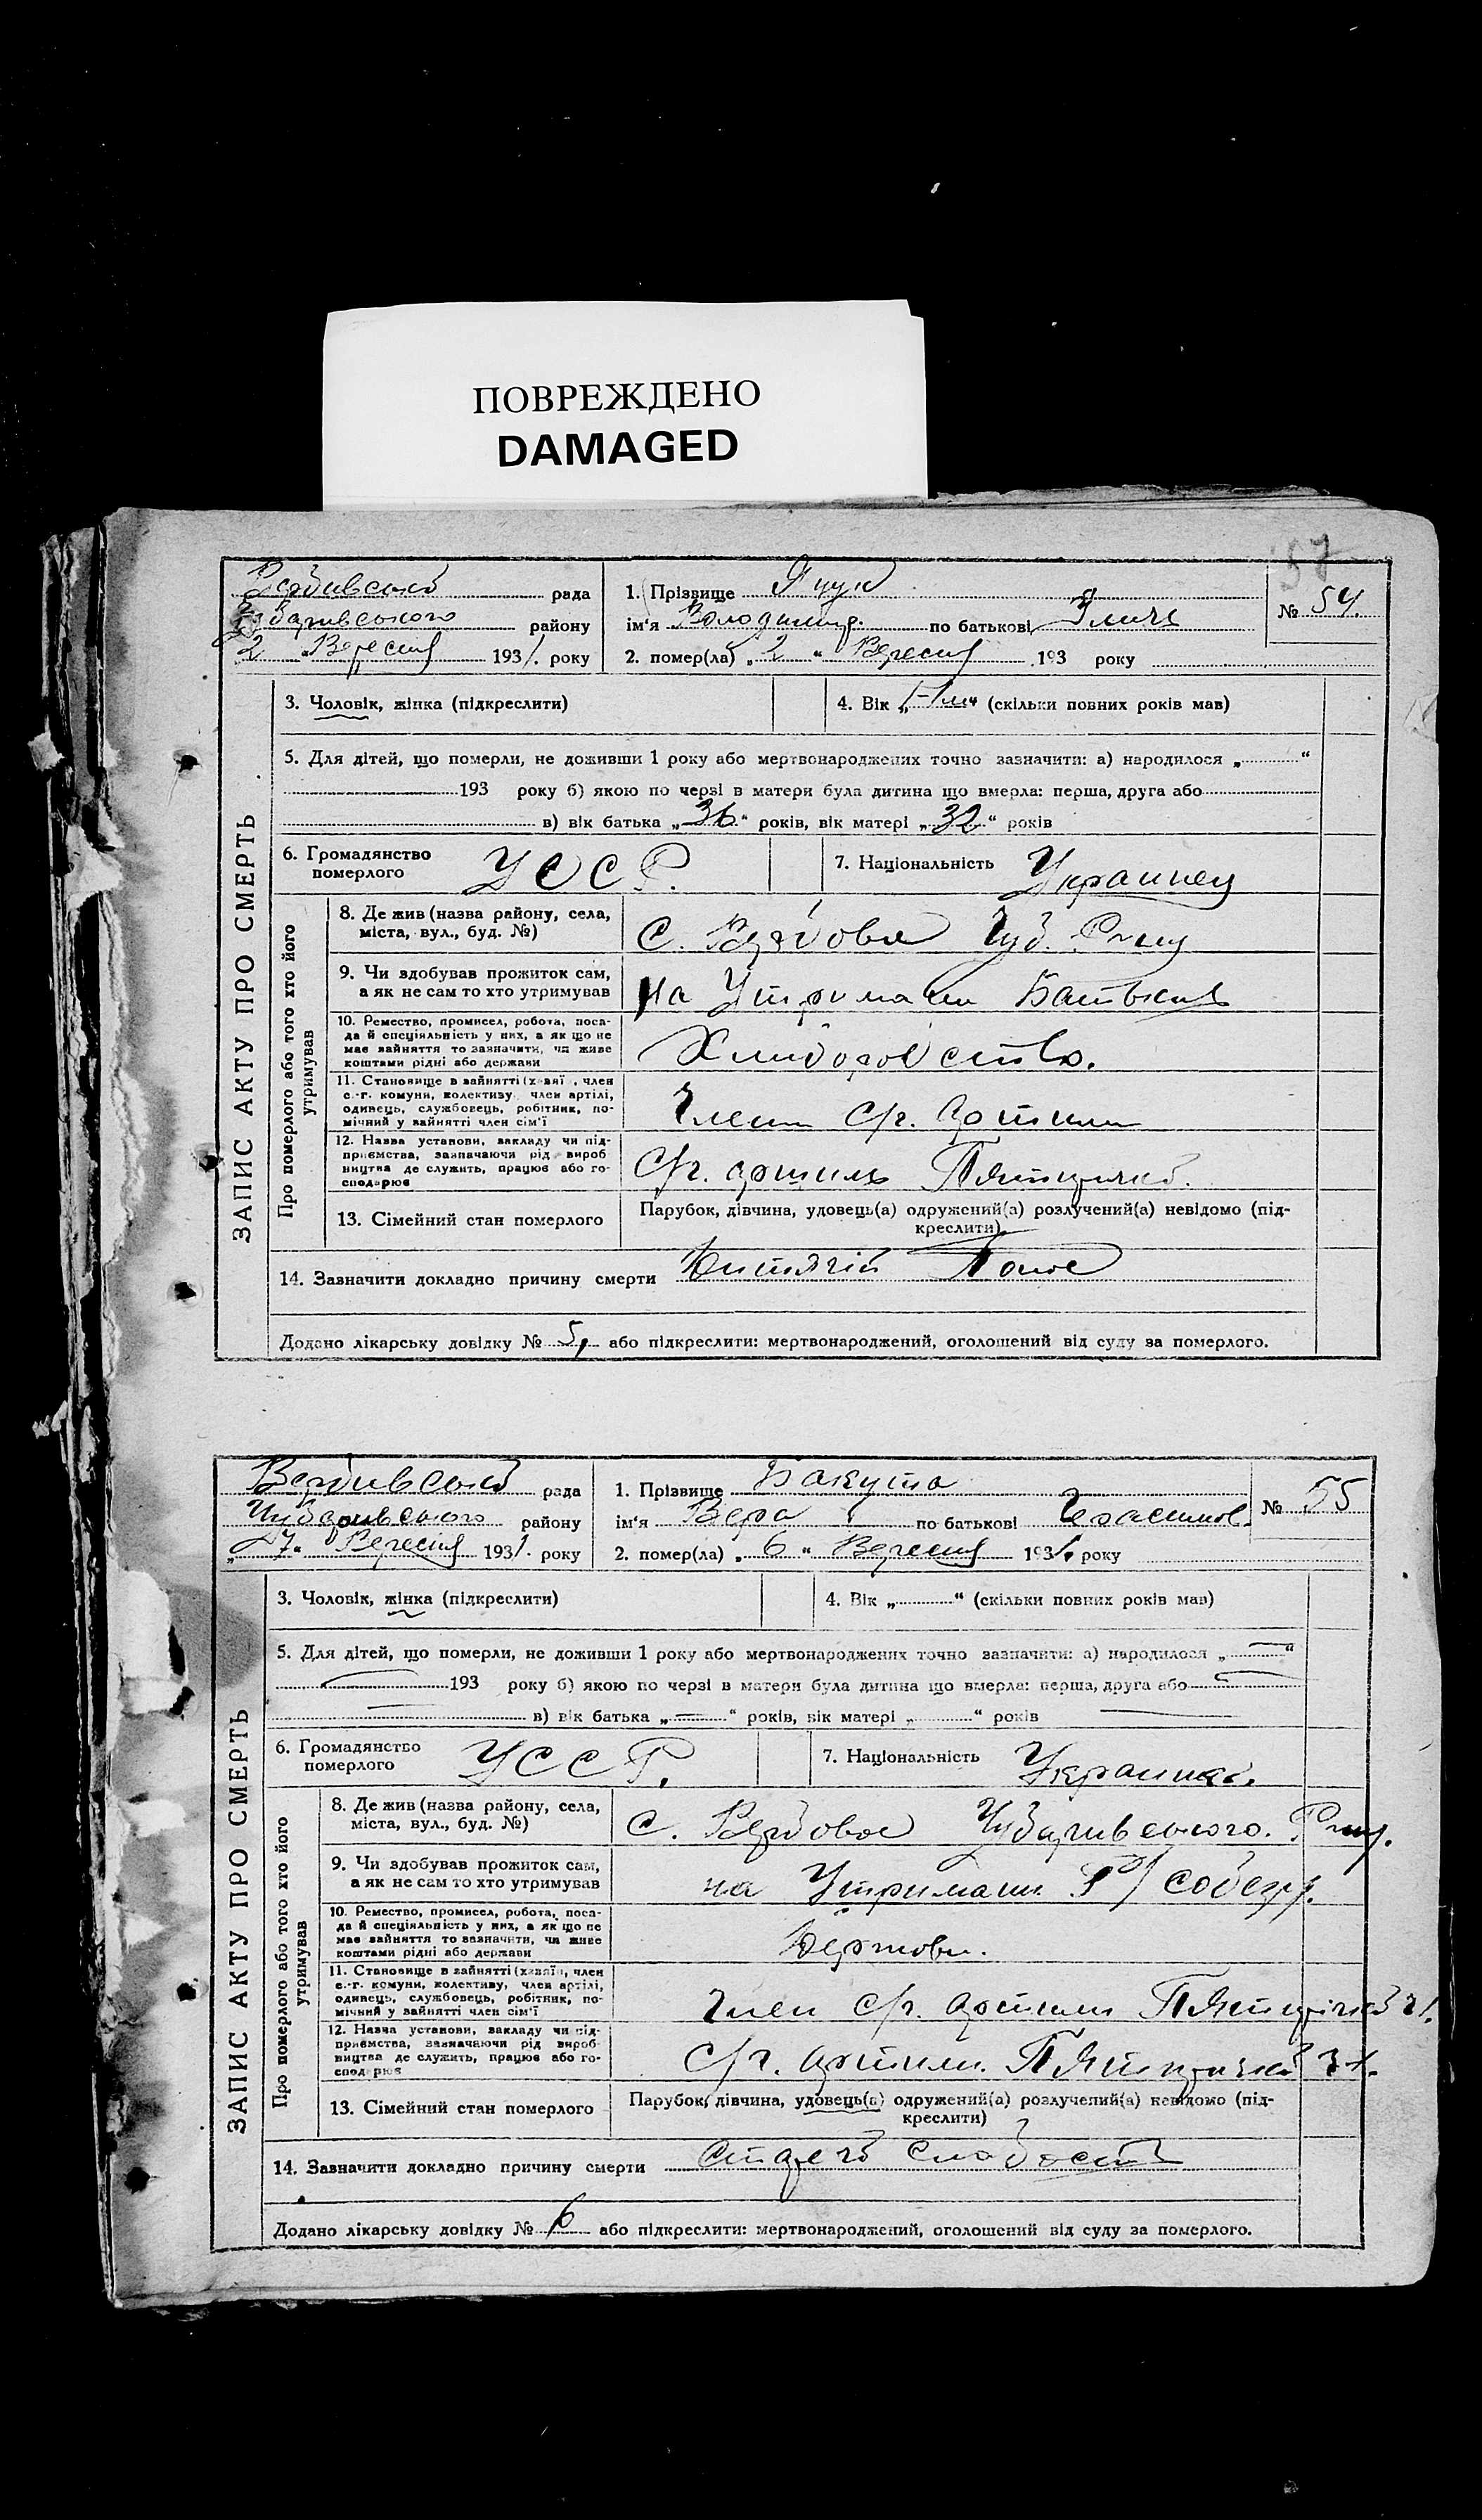 ПОВРЕЖДЕНО
DAMAGED
57
Вербивської рада
Чубаривського району
2 " Вересня 1931. року
1. Прізвище Яцук
ім'я Володимир. по батькові Ілліч
№ 54.
2. помер(ла) „ 2 " Вересня 193 року
ЗАПИС АКТУ ПРО СМЕРТЬ
3. Чоловік, жінка (підкреслити)
4. Вік „ (скільки повних років мав)
5. Для дітей, що померли, не доживши 1 року або мертвонароджених точно зазначити: а) народилося „ "
193 року б) якою по черзі в матери була дитина що вмерла: перша, друга або
в) вік батька „ 36 " років, вік матері „ 32 " років
6. Громадянство померлого УССР.
7. Національність Украинец
Про померлого або того хто його утримував
8. Де жив (назва району, села,
міста, вул., буд. №)
С. Вербове Чуб. Р-ну
9. Чи здобував прожиток сам,
а як не сам то хто утримував
на Утримани Батьків
10. Ремество, промисел, робота, поса-
да й спеціяльність у них, а як що не
має зайняття то зазначити, чи живе
коштами рідні або держави
Хлиборобство.
11. Становище в зайнятті (хазяї , член
с.-г. комуни, колективу, член артілі,
одинець, службовець, робітник, по-
мічний у зайнятті член сім'ї
Член С/г. Артили
12. Назва установи, закладу чи під-
приємства, зазначаючи рід вироб
ництва де служить, працює або го-
сподарює
С/г. артиль Пятирички.
13. Сімейний стан померлого
Парубок, дівчина, удовець(а) одружений(а) розлучений(а) невідомо (під-
креслити)
14. Зазначити докладно причину смерти Дитячий Понос
Додано лікарську довідку № 5, або підкреслити: мертвонароджений, оголошений від суду за померлого.
Вербивської рада
Чубаривського району
„ 7 " Вересня 1931. року
1. Прізвище Бакута
ім'я Вера по батькові
№ 55
2. помер(ла) „ 6 " Вересня 1931. року
ЗАПИС АКТУ ПРО СМЕРТЬ
3. Чоловік, жінка (підкреслити)
4. Вік „ " (скільки повних років мав)
5. Для дітей, що померли, не доживши 1 року або мертвонароджених точно зазначити: а) народилося „ — "
193 року б) якою по черзі в матери була дитина що вмерла: перша, друга або
в) вік батька „ — " років, вік матері „ " років
6. Громадянство померлого УССР.
7. Національність Украинка.
Про померлого або того хто його утримував
8. Де жив (назва району, села,
міста, вул., буд. №)
С. Вербове Чубаривського. Р-ну.
9. Чи здобував прожиток сам,
а як не сам то хто утримував
на Утримани собезу.
10. Ремество, промисел, робота, поса-
да й спеціяльність у них, а як що не
має зайняття то зазначити, чи живе
коштами рідні або держави
Держови.
11. Становище в зайнятті (хазяїн, член
с.-г. комуни, колективу, член артілі,
одинець, службовець, робітник, по-
мічний у зайнятті член сім'ї
Член С/г. Артили Пятирички
12. Назва установи, закладу чи під-
приємства, зазначаючи рід вироб-
ництва де служить, працює або го-
сподарює
С/г. артили. Пятирички
13. Сімейний стан померлого
Парубок, дівчина, удовець(а) одружений(а) розлучений(а) невідомо (під-
креслити)
14. Зазначити докладно причину смерти Стареча слабость
Додано лікарську довідку № 6 або підкреслити: мертвонароджений, оголошений від суду за померлого.